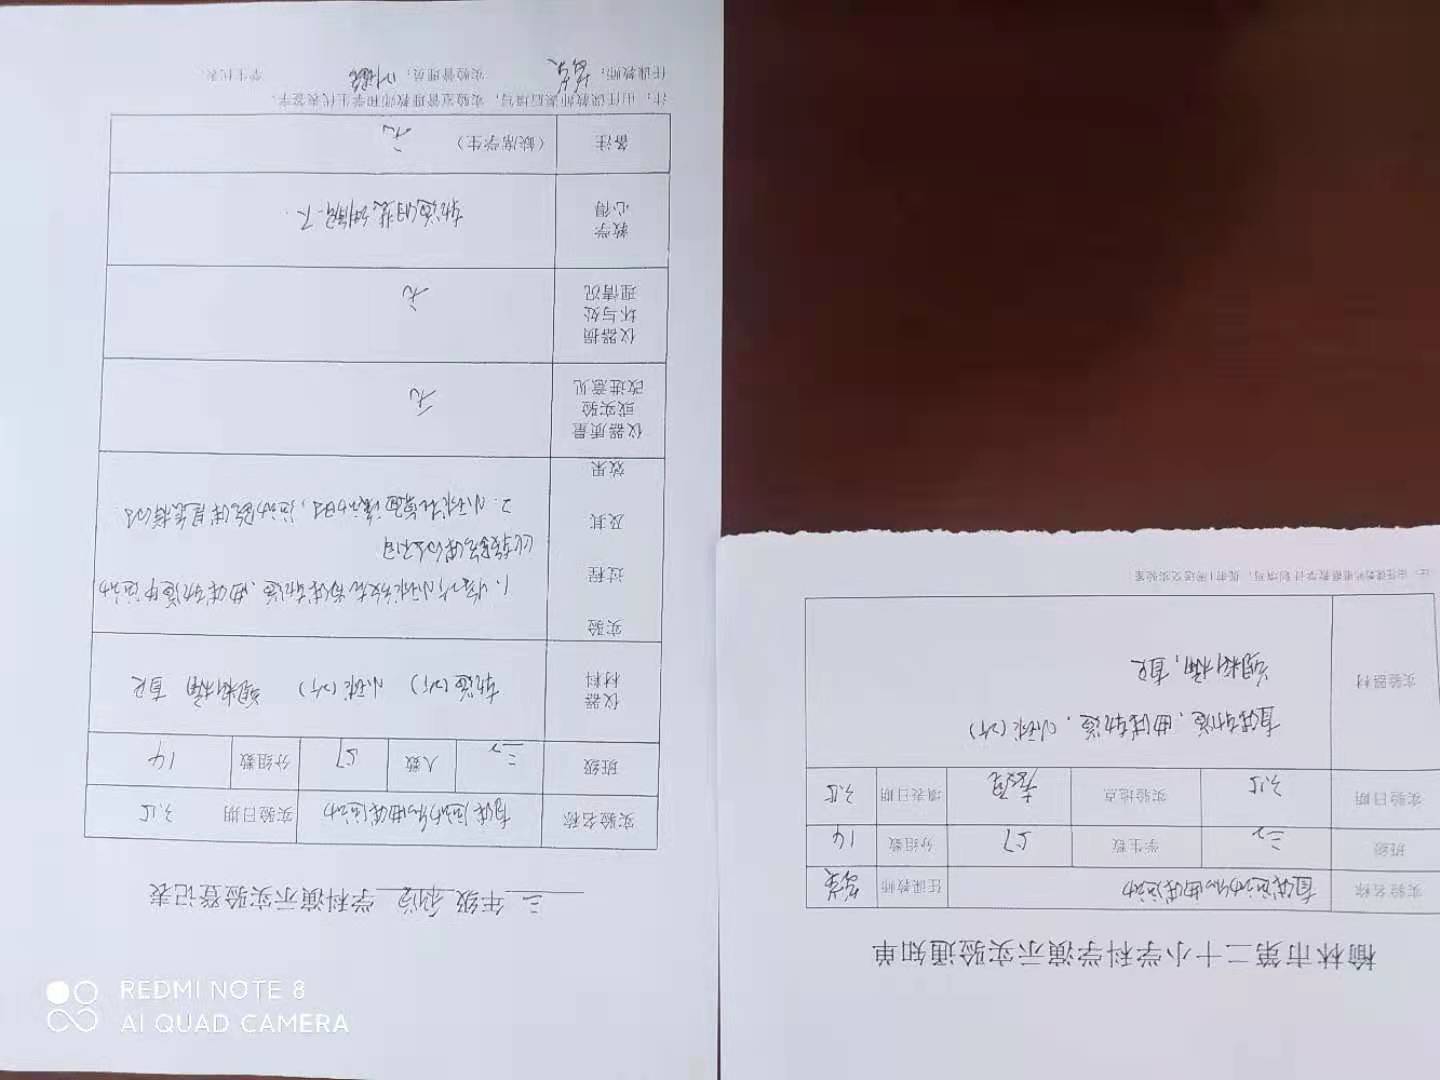 榆林市第二十小学科学演示实验通知单
实验名称 直线运动和曲线运动 任课教师
班级 三2 学生数 57 分组数 14
实验日期 3.15 实验地点 填表日期 3.15
实验器材 直线轨道、曲线轨道、小球(2个)
塑料桶,直尺
注:由任课教师根据教学计划填写,提前1周送交实验室
三 年级 科学 学科演示实验登记表
实验名称 直线运动和曲线运动 实验日期 3.15
班级 三2 人数 57 分组数 14
仪器材料 轨道(2个) 小球(2个) 塑料桶 直尺
实验过程及其效果
1. 小球 直线轨道、曲线轨道中运动
比较 路线的不同
2. 小球在桌面滚动时,运动路线是怎样的
仪器质量或实验改进意见 无
仪器损坏与处理情况 无
教学心得 轨道
备注 (缺席学生) 无
注:由任课教师课后填写,实验室管理教师和学生代表签字。
任课教师: 实验管理员: 学生代表:
REDMI NOTE 8
AI QUAD CAMERA